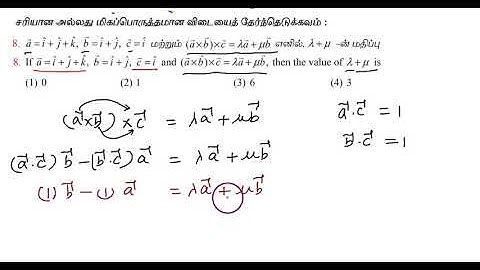 சரியான அல்லது மிகப்பொருத்தமான விடையைத் தேர்ந்தெடுக்கவும் :
8. a⃗ = î + ĵ + k̂, b⃗ = î + ĵ, c⃗ = î மற்றும் (a⃗ × b⃗) × c⃗ = λa⃗ + μb⃗ எனில், λ + μ -ன் மதிப்பு
8. If a⃗ = î + ĵ + k̂, b⃗ = î + ĵ, c⃗ = î and (a⃗ × b⃗) × c⃗ = λa⃗ + μb⃗, then the value of λ + μ is
(1) 0 (2) 1 (3) 6 (4) 3
(a⃗ × b⃗) × c⃗ = λa⃗ + μb⃗ a⃗ . c⃗ = 1
(a⃗ . c⃗) b⃗ − (b⃗ . c⃗) a⃗ = λa⃗ + μb⃗ b⃗ . c⃗ = 1
(1) b⃗ − (1) a⃗ = λa⃗ + μb⃗